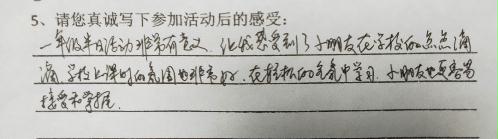 5、请您真诚写下参加活动后的感受：
一年级半日活动非常有意义，让我感受到了小朋友在学校的点点滴
滴，学校上课时的氛围也非常好，在轻松的氛围中学习，小朋友也更容易
接受和掌握。